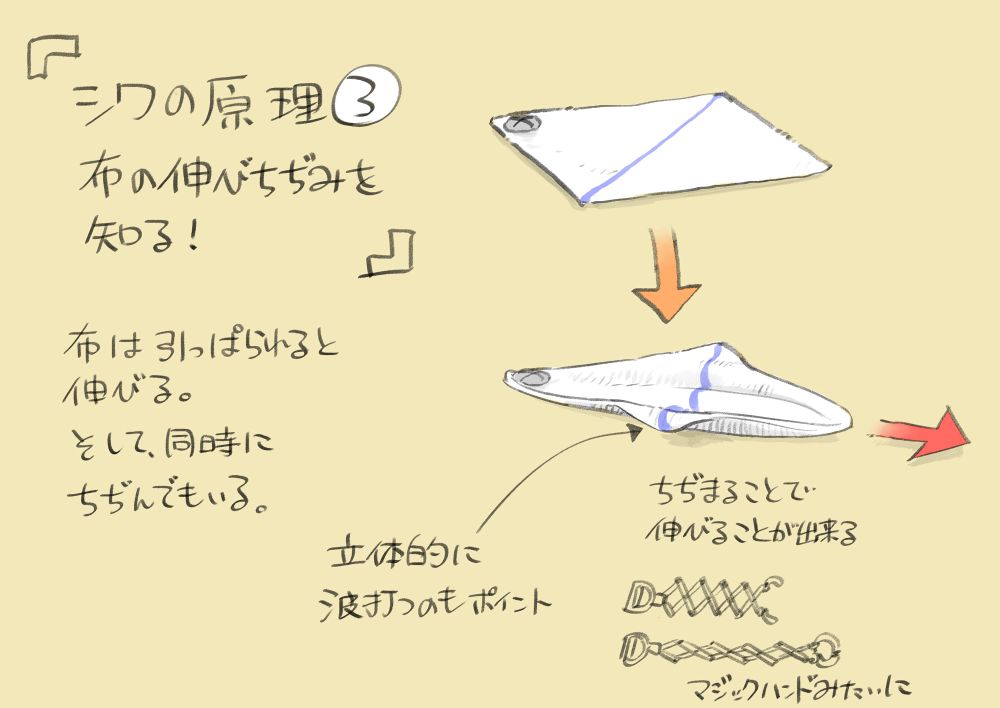 『シワの原理③
布の伸びちぢみを
知る!』
布は引っぱられると
伸びる。
そして、同時に
ちぢんでもいる。
立体的に
波打つのもポイント
ちぢまることで
伸びることが出来る
マジックハンドみたいに